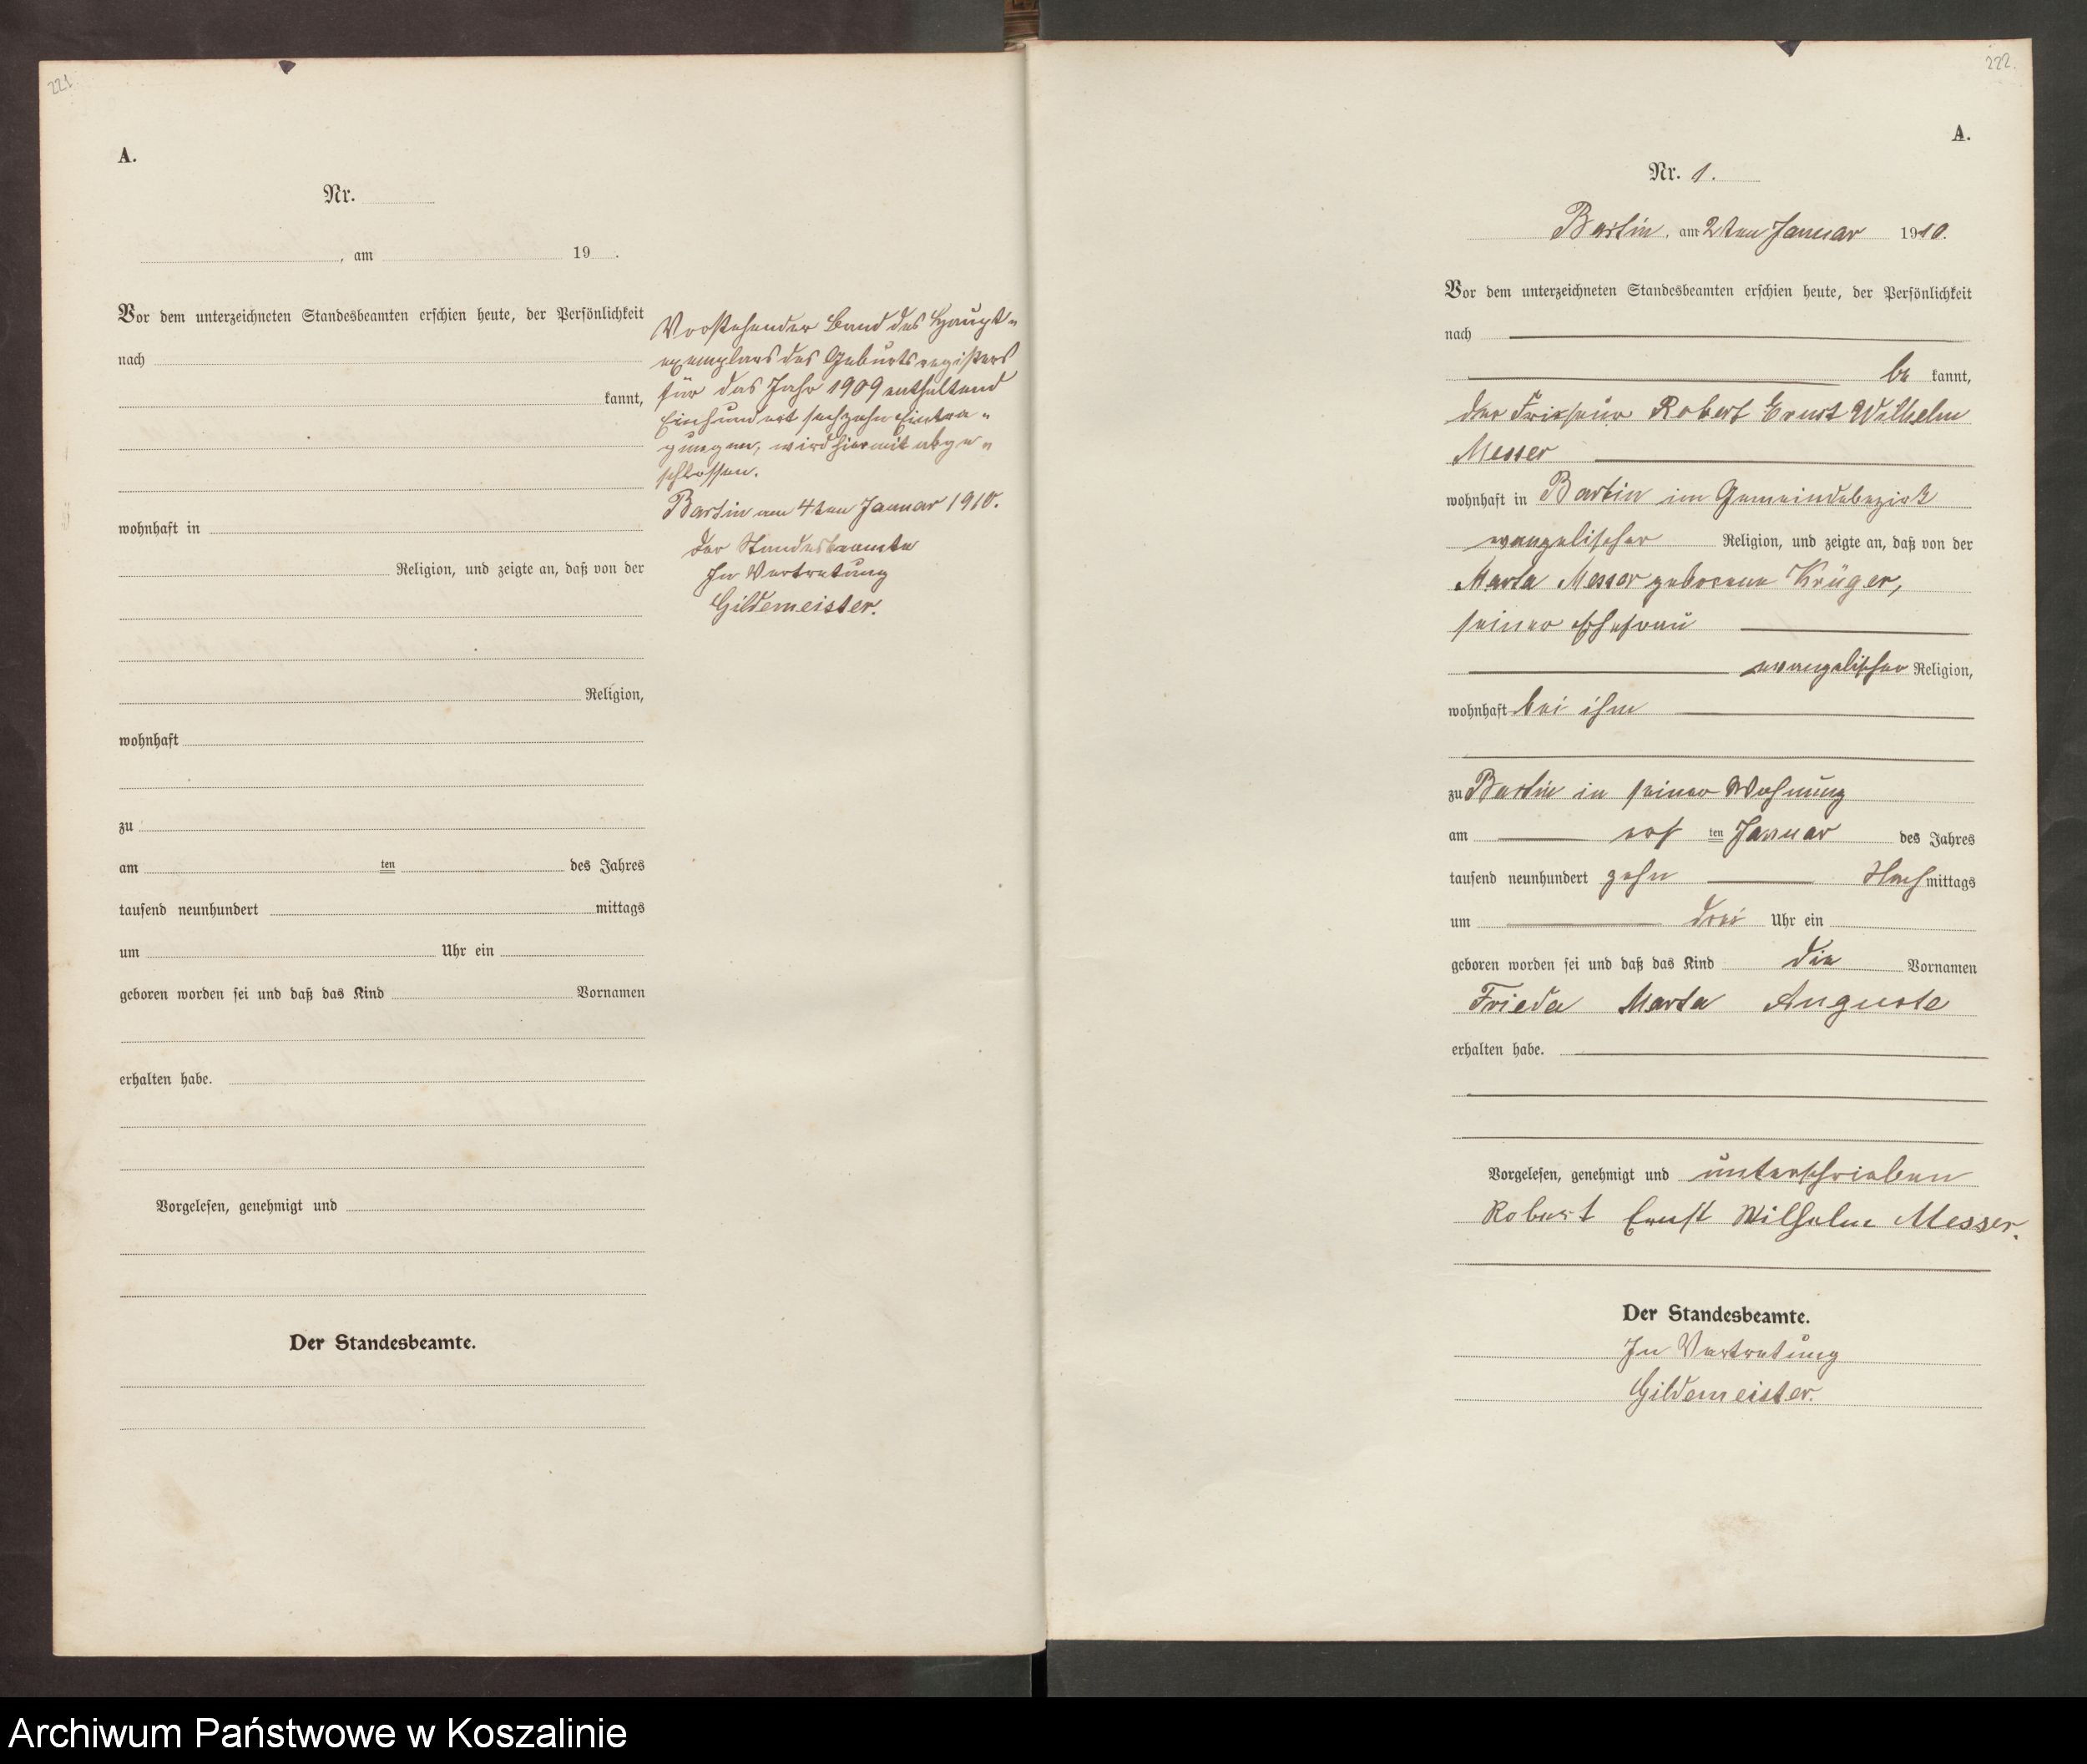 221
A.
Nr.
, am 19 .
Vor dem unterzeichneten Standesbeamten erschien heute, der Persönlichkeit
nach
kannt,
wohnhaft in
Religion, und zeigte an, daß von der
Religion,
wohnhaft
zu
am ten des Jahres
tausend neunhundert mittags
um Uhr ein
geboren worden sei und daß das Kind Vornamen
erhalten habe.
Vorgelesen, genehmigt und
Der Standesbeamte.
Vorstehender Band des Haupt-
exemplars des Geburtsregisters
für das Jahr 1909 enthaltend
Einhundert sechzehn Eintra-
gungen, wird hiermit abge-
schlossen.
Bartin am 4ten Januar 1910.
Der Standesbeamte
In Vertretung
Gildemeister.
222.
A.
Nr. 1.
Bartin, am 2ten Januar 1910.
Vor dem unterzeichneten Standesbeamten erschien heute, der Persönlichkeit
nach
be kannt,
der Friseur Robert Ernst Wilhelm
Messer
wohnhaft in Bartin im Gemeindebezirk
evangelischer Religion, und zeigte an, daß von der
Marta Messer geborene Krüger,
seiner Ehefrau
evangelischer Religion,
wohnhaft bei ihm
zu Bartin in seiner Wohnung
am ten Januar des Jahres
tausend neunhundert zehn Nachmittags
um drei Uhr ein
geboren worden sei und daß das Kind die Vornamen
Frieda Marta Auguste
erhalten habe.
Vorgelesen, genehmigt und unterschrieben
Robert Ernst Wilhelm Messer.
Der Standesbeamte.
In Vertretung
Gildemeister.
Archiwum Państwowe w Koszalinie